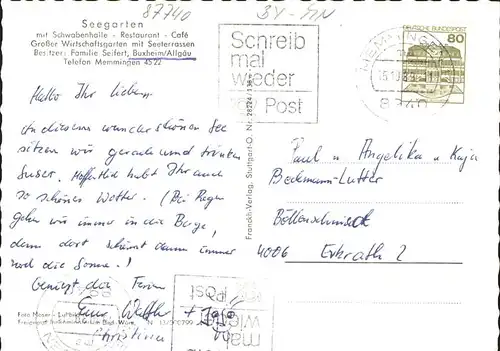 87740
BY-MN
Seegarten
mit Schwabenhalle - Restaurant - Café
Großer Wirtschaftsgarten mit Seeterrassen
Besitzer: Familie Seifert, Buxheim/Allgäu
Telefon Memmingen 4522
Schreib
mal
wieder
Post
DEUTSCHE BUNDESPOST
80
MEMMINGEN
Hallo Ihr lieben,
An diesem wunderschönen See
sitzen wir gerade und trinken
Suser. Hoffentlich habt Ihr auch
so schönes Wetter. (Bei Regen
gehen wir immer in die Berge,
denn dort scheint dann immer
wol die Sonne!)
Genießt die Ferien
Eure
Christina
Franckh-Verlag, Stuttgart-O
Paul u Angelika u Kaja
Beckmann-Lutter
4006 Erkrath 2
mal
Post